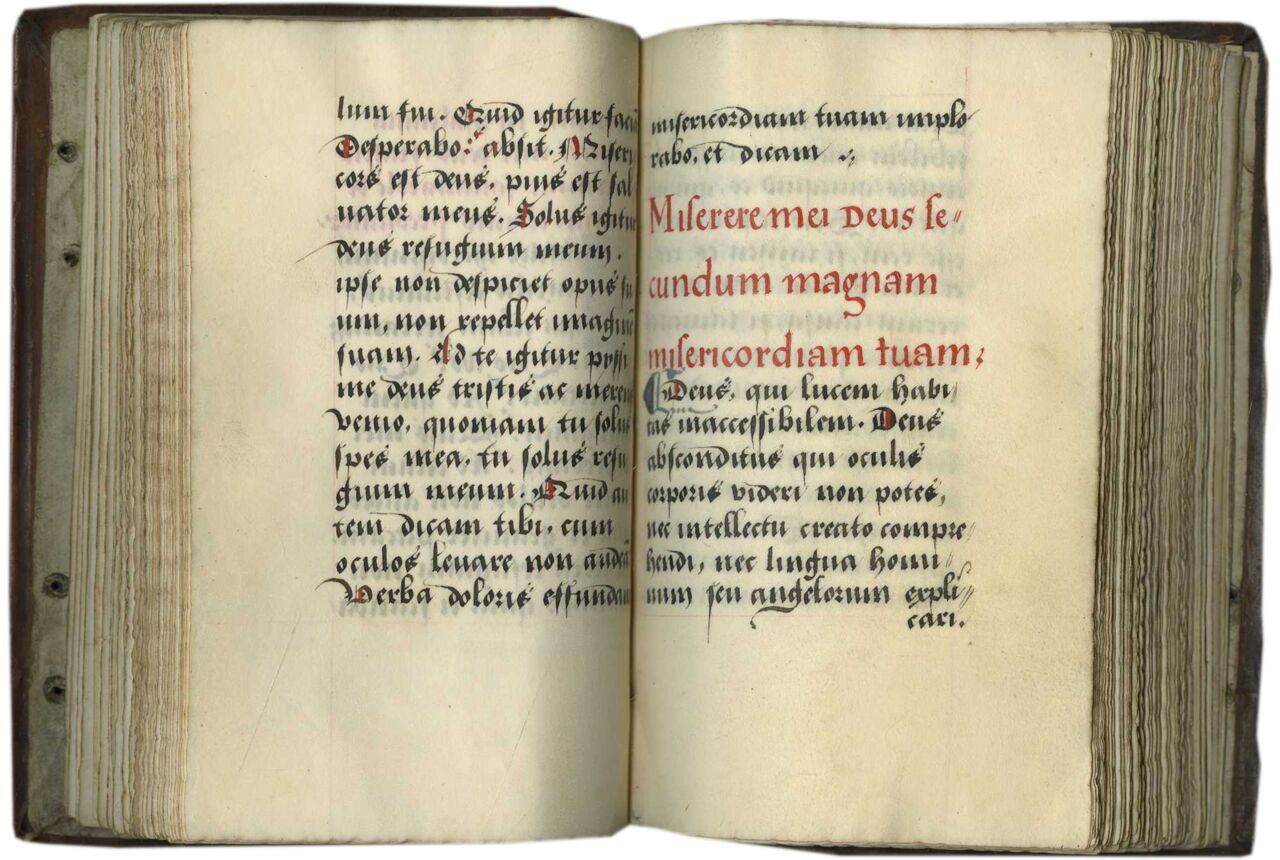 lum sui. Quid igitur faciā
Desperabo? absit. Miseri
cors est deus, pius est sal
uator meus. Solus igitur
deus refugium meum.
ipse non despiciet opus su
um, non repellet imaginē
suam. Ad te igitur pyssi
me deus tristis ac merens
venio, quoniam tu solus
spes mea, tu solus refu
gium meum. Quid au
tem dicam tibi, cum
oculos leuare non audeā
Verba doloris effundam
misericordiam tuam implo
rabo, et dicam
Miserere mei Deus se
cundum magnam
misericordiam tuam;
Deus, qui lucem habi
tas inaccessibilem. Deus
absconditus qui oculis
corporis videri non potes,
nec intellectu creato compre
hendi, nec lingua homi
num seu angelorum expli
cari.